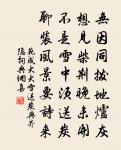 無因同撥地爐灰
想見柴荆晚未開
不是雪中須送炭
聊裝風景要詩來
范成大大雪送炭與芥
隱詞典網集